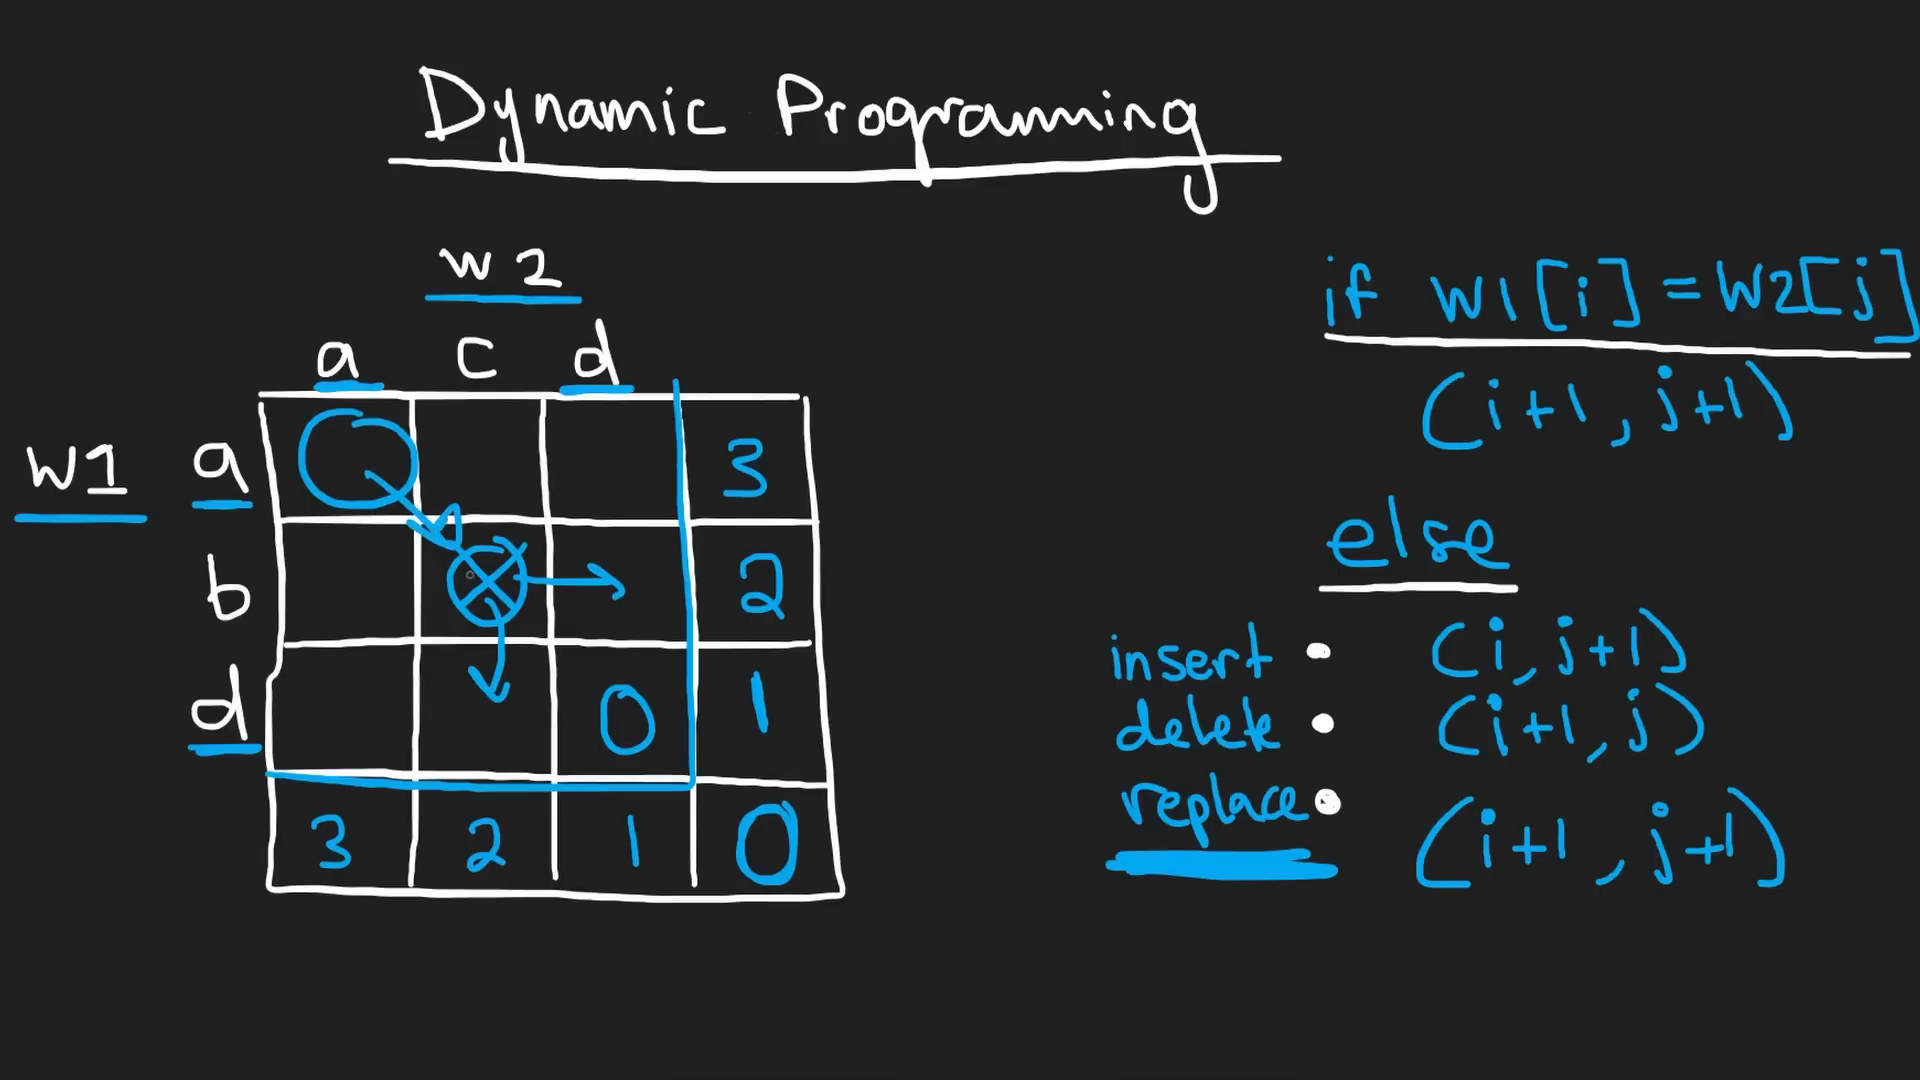 Dynamic Programming
w2
a c d
w1 a 3
b 2
d 0 1
3 2 1 0
if W1[i] = W2[j]
(i+1, j+1)
else
insert • (i, j+1)
delete • (i+1, j)
replace • (i+1, j+1)